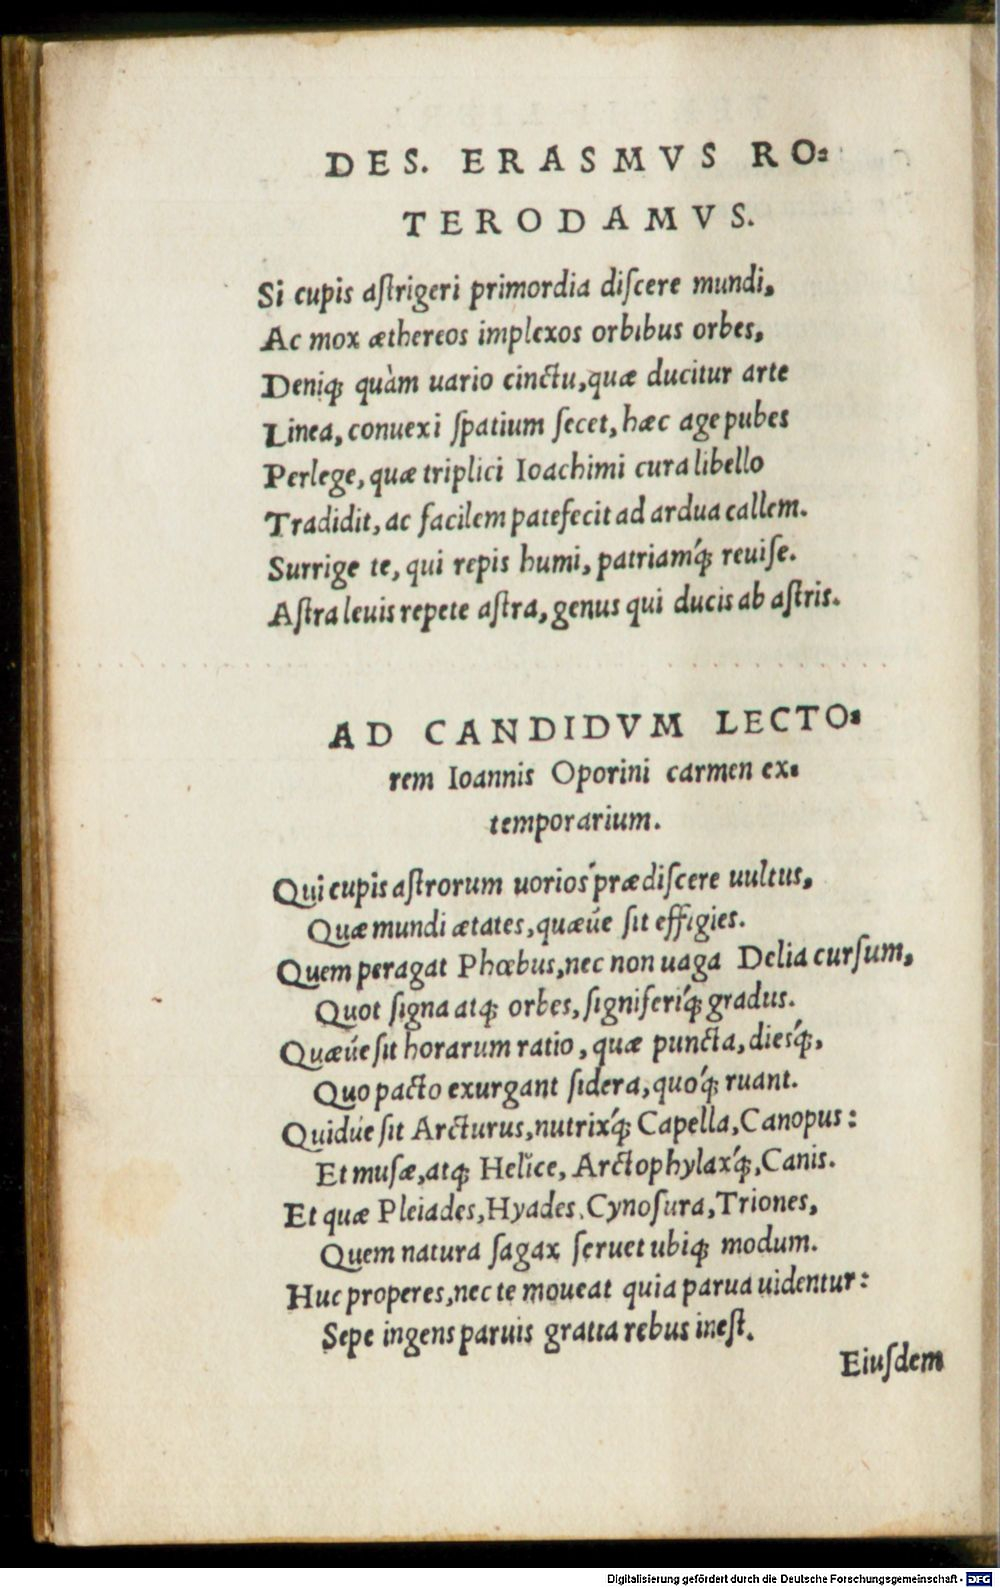 DES. ERASMVS RO⸗
TERODAMVS.
Si cupis aſtrigeri primordia diſcere mundi,
Ac mox æthereos implexos orbibus orbes,
Deniqꝫ quàm uario cinctu, quæ ducitur arte
Linea, conuexi ſpatium ſecet, hæc age pubes
Perlege, quæ triplici Ioachimi cura libello
Tradidit, ac facilem patefecit ad ardua callem.
Surrige te, qui repis humi, patriaḿqꝫ reuiſe.
Aſtra leuis repete aſtra, genus qui ducis ab aſtris.
AD CANDIDVM LECTO⸗
rem Ioannis Oporini carmen ex⸗
temporarium.
Qui cupis aſtrorum uorios´ prædiſcere uultus,
Quæ mundi ætates, quæúe ſit effigies.
Quem peragat Phœbus, nec non uaga Delia curſum,
Quot ſigna atqꝫ orbes, ſigniferi´qꝫ gradus.
Quæúe ſit horarum ratio, quæ puncta, dies´qꝫ,
Quo pacto exurgant ſidera, quo´qꝫ ruant.
Quidúe ſit Arcturus, nutrix´qꝫ Capella, Canopus:
Et muſæ, atqꝫ Helice, Arctophylax´qꝫ, Canis.
Et quæ Pleiades, Hyades, Cynoſura, Triones,
Quem natura ſagax ſeruet ubiqꝫ modum.
Huc properes, nec te moueat quia parua uidentur:
Sepe ingens paruis gratia rebus ineſt.
Eiuſdem
Digitalisierung gefördert durch die Deutsche Forschungsgemeinschaft - DFG